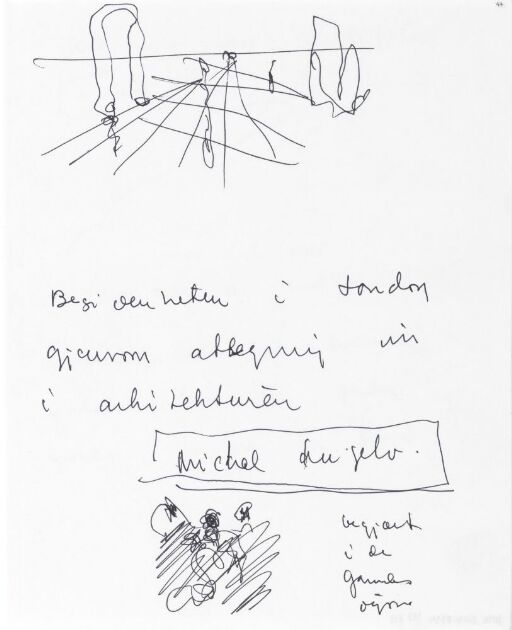 Begivenheten i London
gjennom
i arkitekturen
Michel Angelo.
begjært
i de
gamles
øyne